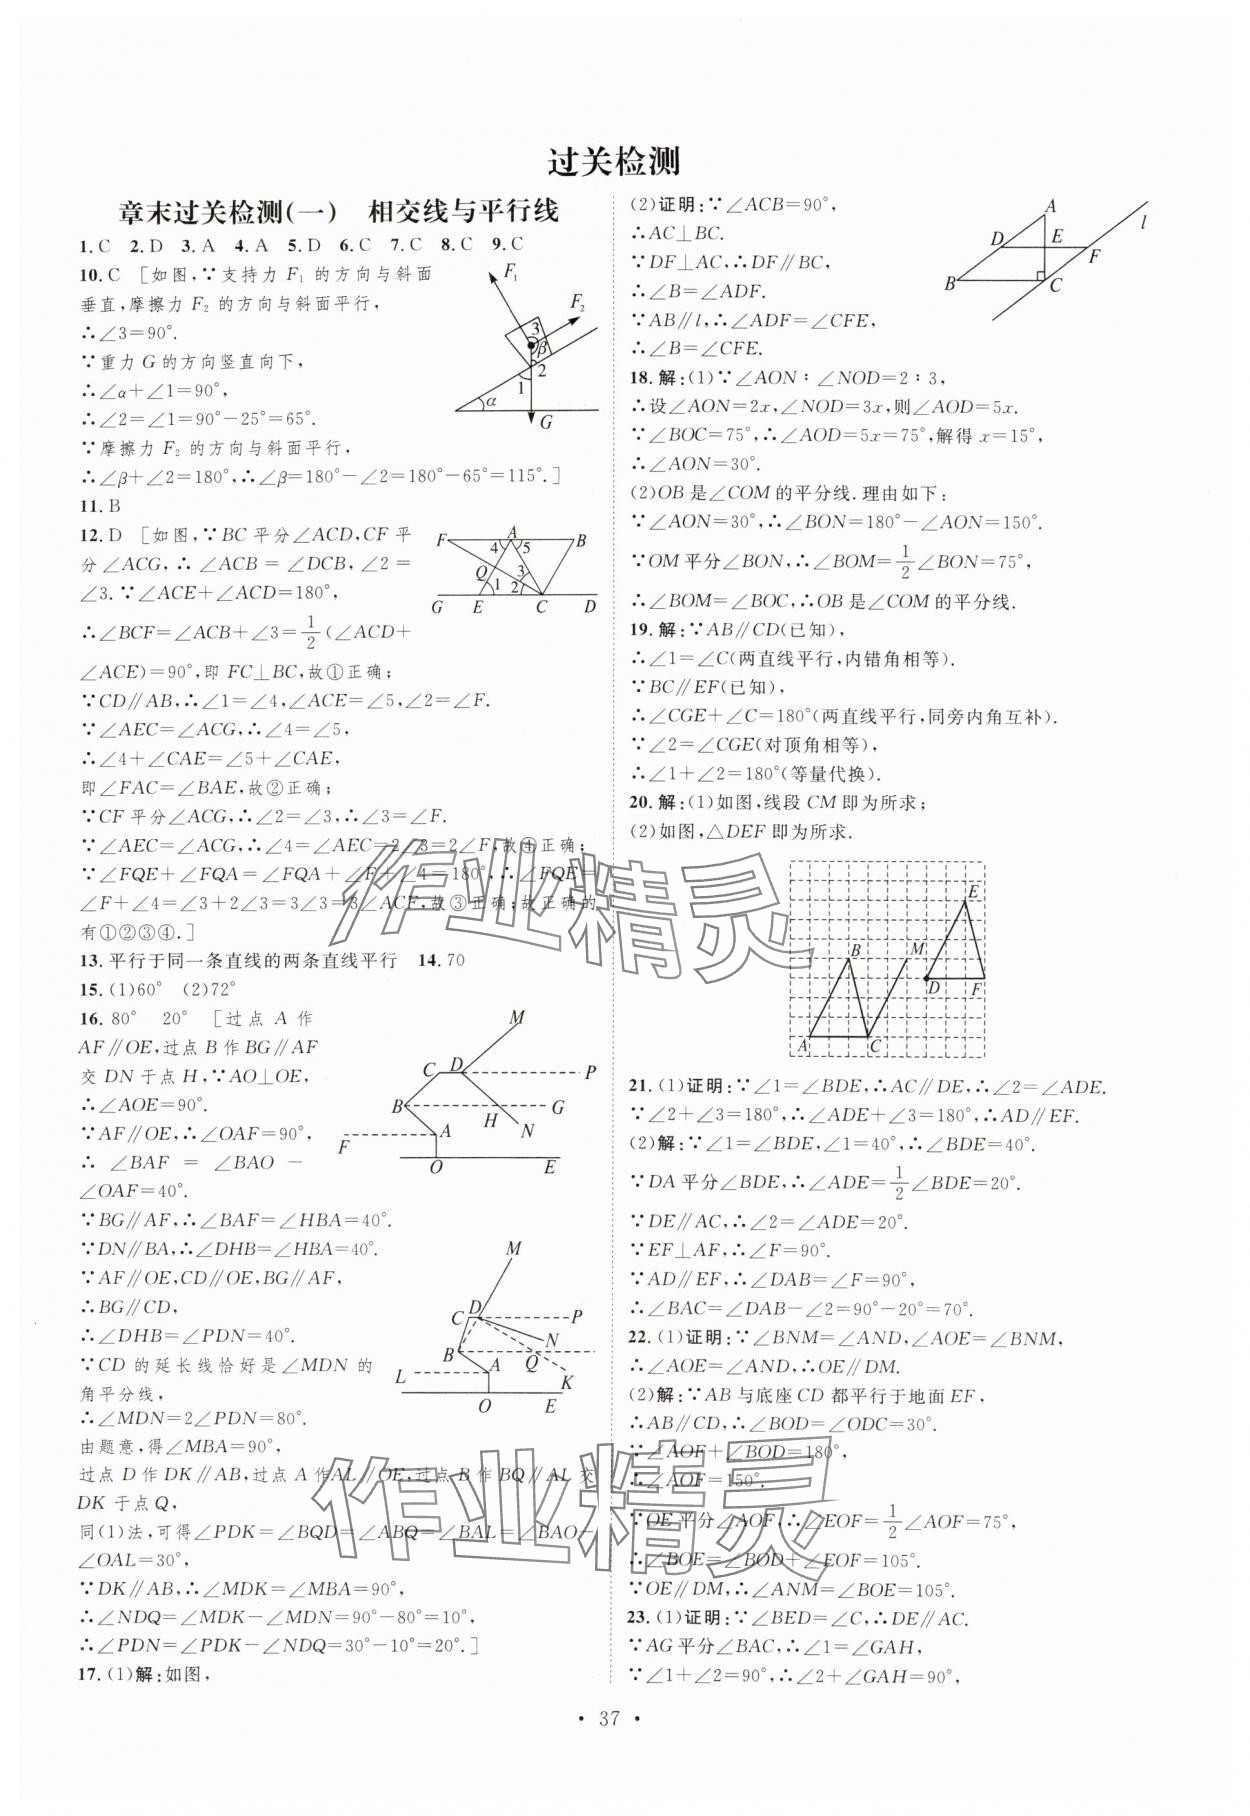 过关检测
章末过关检测(一)　相交线与平行线
1.C　2.D　3.A　4.A　5.D　6.C　7.C　8.C　9.C
10.C　[如图,∵支持力 F₁ 的方向与斜面
垂直,摩擦力 F₂ 的方向与斜面平行,
∴∠3=90°.
∵重力 G 的方向竖直向下,
∴∠α+∠1=90°,
∴∠2=∠1=90°-25°=65°.
∵摩擦力 F₂ 的方向与斜面平行,
∴∠β+∠2=180°,∴∠β=180°-∠2=180°-65°=115°.]
F₁
F₂
3
β
2
1
α
G
11.B
12.D　[如图,∵BC 平分∠ACD,CF 平
分∠ACG,∴∠ACB=∠DCB,∠2=
∠3.∵∠ACE+∠ACD=180°,
∴∠BCF=∠ACB+∠3=1/2(∠ACD+
∠ACE)=90°,即 FC⊥BC,故①正确;
∵CD∥AB,∴∠1=∠4,∠ACE=∠5,∠2=∠F.
∵∠AEC=∠ACG,∴∠4=∠5,
∴∠4+∠CAE=∠5+∠CAE,
即∠FAC=∠BAE,故②正确;
∵CF 平分∠ACG,∴∠2=∠3,∴∠3=∠F.
∵∠AEC=∠ACG,∴∠4=∠AEC=2∠3=2∠F,故④正确;
∵∠FQE+∠FQA=∠FQA+∠F+∠4=180°,∴∠FQE=
∠F+∠4=∠3+2∠3=3∠3=3∠ACF,故③正确;故正确的
有①②③④.]
F A B
4 5
Q 1 3 2
G E C D
13.平行于同一条直线的两条直线平行　14.70
15.(1)60°　(2)72°
16.80°　20°　[过点 A 作
AF∥OE,过点 B 作 BG∥AF
交 DN 于点 H,∵AO⊥OE,
∴∠AOE=90°.
∵AF∥OE,∴∠OAF=90°,
∴∠BAF=∠BAO-
∠OAF=40°.
∵BG∥AF,∴∠BAF=∠HBA=40°.
∵DN∥BA,∴∠DHB=∠HBA=40°.
∵AF∥OE,CD∥OE,BG∥AF,
∴BG∥CD,
∴∠DHB=∠PDN=40°.
∵CD 的延长线恰好是∠MDN 的
角平分线,
∴∠MDN=2∠PDN=80°.
由题意,得∠MBA=90°,
过点 D 作 DK∥AB,过点 A 作AL∥OE,过点 B 作 BQ∥AL 交
DK 于点 Q,
同(1)法,可得∠PDK=∠BQD=∠ABQ=∠BAL=∠BAO-
∠OAL=30°,
∵DK∥AB,∴∠MDK=∠MBA=90°,
∴∠NDQ=∠MDK-∠MDN=90°-80°=10°,
∴∠PDN=∠PDK-∠NDQ=30°-10°=20°.]
M
C D P
B H G
N
F A
O E
M
C D P
N
B Q
L A K
O E
17.(1)解:如图,
(2)证明:∵∠ACB=90°,
∴AC⊥BC.
∵DF⊥AC,∴DF∥BC,
∴∠B=∠ADF.
∵AB∥l,∴∠ADF=∠CFE,
∴∠B=∠CFE.
A l
D E F
B C
18.解:(1)∵∠AON∶∠NOD=2∶3,
∴设∠AON=2x,∠NOD=3x,则∠AOD=5x.
∵∠BOC=75°,∴∠AOD=5x=75°,解得 x=15°,
∴∠AON=30°.
(2)OB 是∠COM 的平分线.理由如下:
∵∠AON=30°,∴∠BON=180°-∠AON=150°.
∵OM 平分∠BON,∴∠BOM=1/2∠BON=75°,
∴∠BOM=∠BOC,∴OB 是∠COM 的平分线.
19.解:∵AB∥CD(已知),
∴∠1=∠C(两直线平行,内错角相等).
∵BC∥EF(已知),
∴∠CGE+∠C=180°(两直线平行,同旁内角互补).
∵∠2=∠CGE(对顶角相等),
∴∠1+∠2=180°(等量代换).
20.解:(1)如图,线段 CM 即为所求;
(2)如图,△DEF 即为所求.
E
B M
D F
A C
21.(1)证明:∵∠1=∠BDE,∴AC∥DE,∴∠2=∠ADE.
∵∠2+∠3=180°,∴∠ADE+∠3=180°,∴AD∥EF.
(2)解:∵∠1=∠BDE,∠1=40°,∴∠BDE=40°.
∵DA 平分∠BDE,∴∠ADE=1/2∠BDE=20°.
∵DE∥AC,∴∠2=∠ADE=20°.
∵EF⊥AF,∴∠F=90°.
∵AD∥EF,∴∠DAB=∠F=90°,
∴∠BAC=∠DAB-∠2=90°-20°=70°.
22.(1)证明:∵∠BNM=∠AND,∠AOE=∠BNM,
∴∠AOE=∠AND,∴OE∥DM.
(2)解:∵AB 与底座 CD 都平行于地面 EF,
∴AB∥CD,∴∠BOD=∠ODC=30°.
∵∠AOF+∠BOD=180°,
∴∠AOF=150°.
∵OE 平分∠AOF,∴∠EOF=1/2∠AOF=75°,
∴∠BOE=∠BOD+∠EOF=105°.
∵OE∥DM,∴∠ANM=∠BOE=105°.
23.(1)证明:∵∠BED=∠C,∴DE∥AC.
∵AG 平分∠BAC,∴∠1=∠GAH,
∵∠1+∠2=90°,∴∠2+∠GAH=90°,
• 37 •
作业精灵
作业精灵